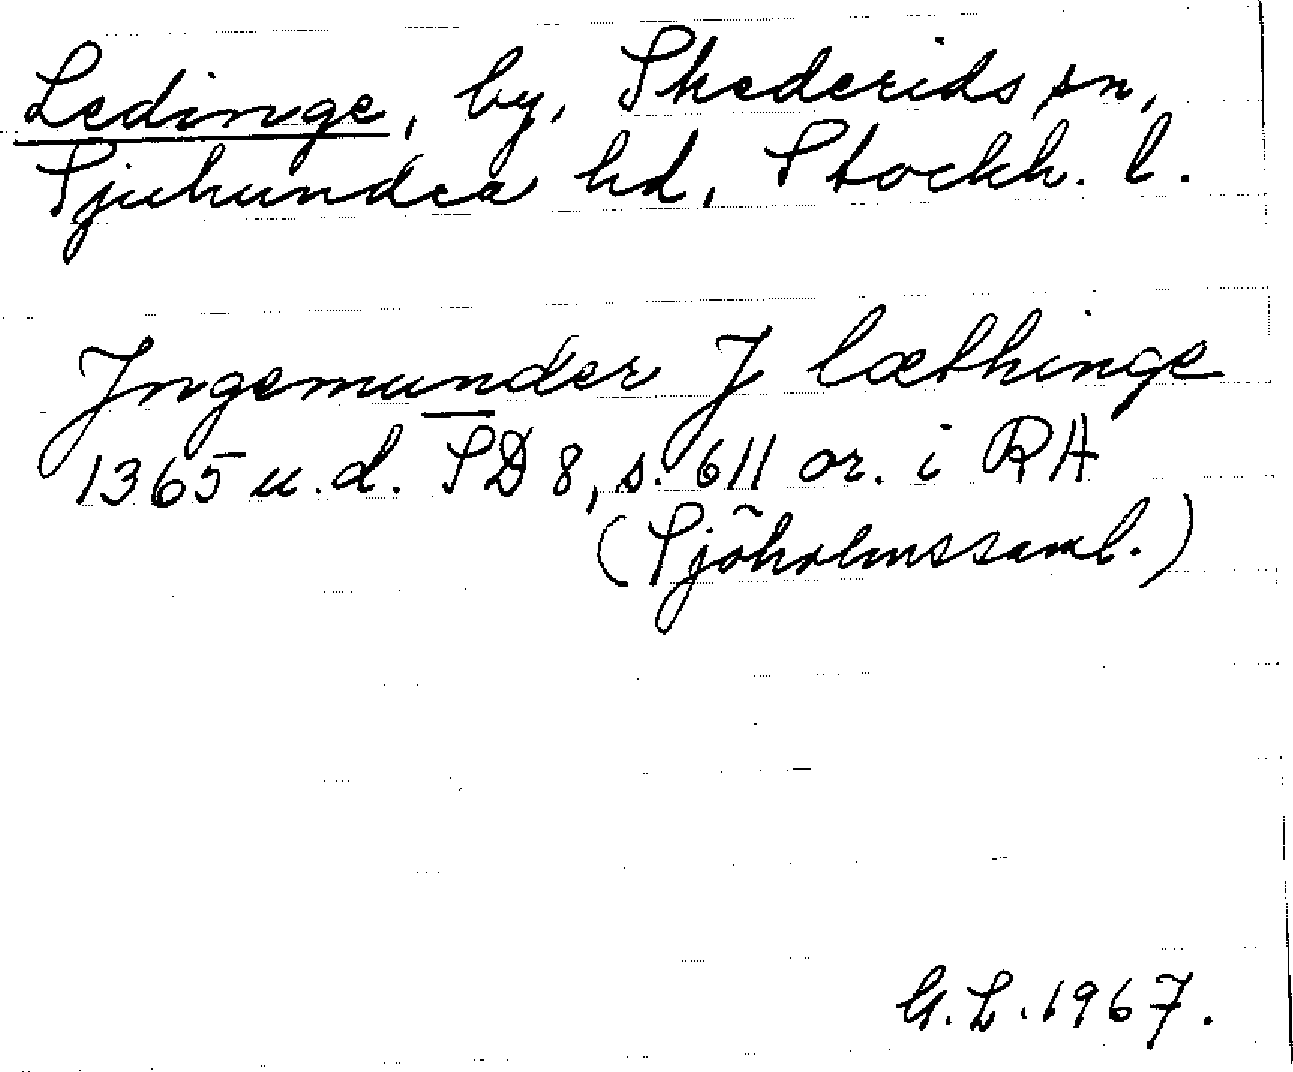 Ledinge, by, Skederids sn,
Sjuhundra hd, Stockh. l.
Jngemunder J læthinge
1365 u.d. SD 8, s. 611 or. i RA
(Sjöholmssaml.)
G.L. 1967.